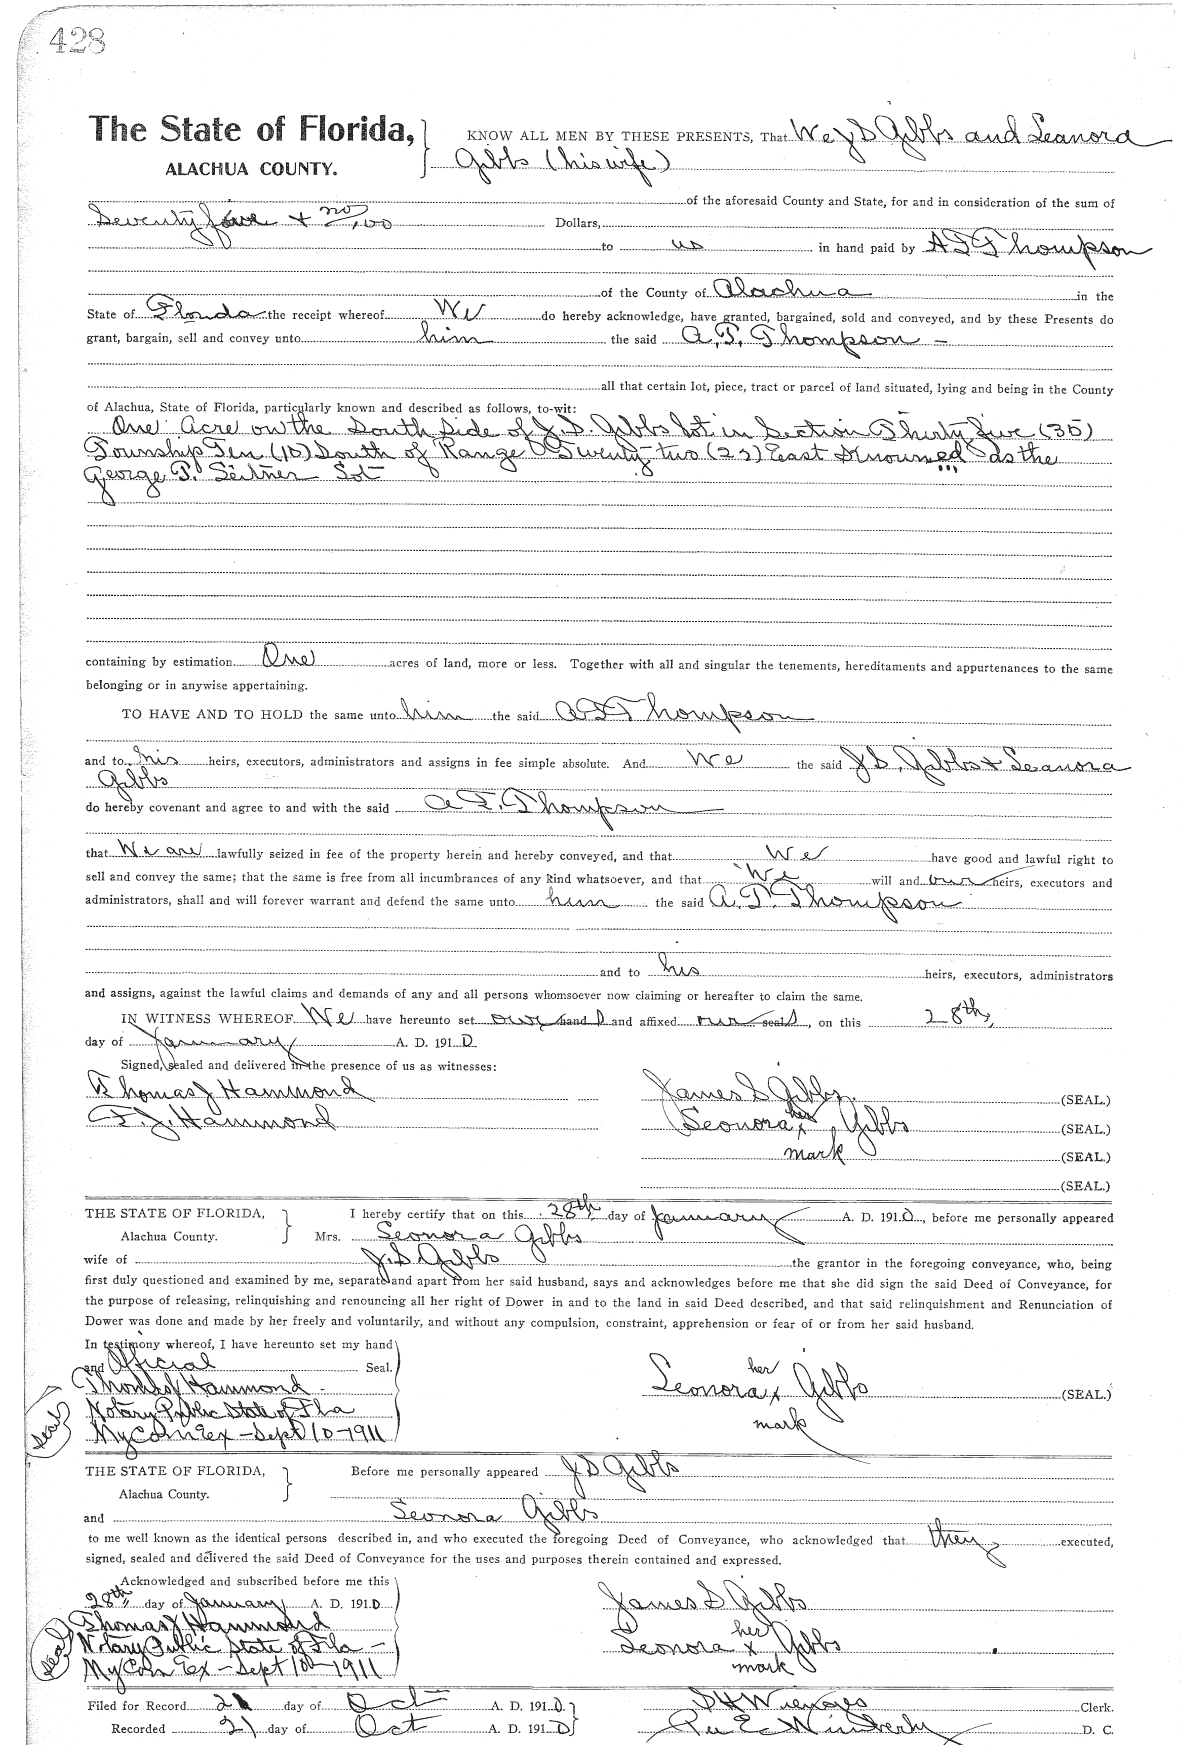 428
The State of Florida, KNOW ALL MEN BY THESE PRESENTS, That We J S Gibbs and Leanora
ALACHUA COUNTY. Gibbs (his wife)
of the aforesaid County and State, for and in consideration of the sum of
Seventy five + no/100 Dollars,
to us in hand paid by A T Thompson
of the County of Alachua in the
State of Florida the receipt whereof We do hereby acknowledge, have granted, bargained, sold and conveyed, and by these Presents do
grant, bargain, sell and convey unto him the said A. T. Thompson -
all that certain lot, piece, tract or parcel of land situated, lying and being in the County
of Alachua, State of Florida, particularly known and described as follows, to-wit:
One Acre on the South Side of J. S. Gibbs Lot in Section Thirty five (35)
Township Ten (10) South of Range Twenty two (22) East as the
George P. Lot
containing by estimation One acres of land, more or less. Together with all and singular the tenements, hereditaments and appurtenances to the same
belonging or in anywise appertaining.
TO HAVE AND TO HOLD the same unto him the said A T Thompson
and to his heirs, executors, administrators and assigns in fee simple absolute. And We the said J S. Gibbs + Leanora
Gibbs
do hereby covenant and agree to and with the said A T. Thompson
that We are lawfully seized in fee of the property herein and hereby conveyed, and that We have good and lawful right to
sell and convey the same; that the same is free from all incumbrances of any kind whatsoever, and that We will and our heirs, executors and
administrators, shall and will forever warrant and defend the same unto him the said A. T. Thompson
and to his heirs, executors, administrators
and assigns, against the lawful claims and demands of any and all persons whomsoever now claiming or hereafter to claim the same.
IN WITNESS WHEREOF We have hereunto set our hand S and affixed our seal S, on this 28th,
day of January A. D. 191 0
Signed, sealed and delivered in the presence of us as witnesses:
Thomas J Hammond James S Gibbs. (SEAL.)
F. J. Hammond Leonora her x Gibbs (SEAL.)
mark (SEAL.)
(SEAL.)
THE STATE OF FLORIDA, I hereby certify that on this 28th, day of January A. D. 191 0, before me personally appeared
Alachua County. Mrs. Leonora Gibbs
wife of J. S. Gibbs the grantor in the foregoing conveyance, who, being
first duly questioned and examined by me, separate and apart from her said husband, says and acknowledges before me that she did sign the said Deed of Conveyance, for
the purpose of releasing, relinquishing and renouncing all her right of Dower in and to the land in said Deed described, and that said relinquishment and Renunciation of
Dower was done and made by her freely and voluntarily, and without any compulsion, constraint, apprehension or fear of or from her said husband.
In testimony whereof, I have hereunto set my hand
and Official Seal. her
Thomas J Hammond - Leonora x Gibbs (SEAL.)
Notary Public State of Fla mark
(Seal) My Com Ex - Sept 10 - 1911
THE STATE OF FLORIDA, Before me personally appeared J S Gibbs
Alachua County.
and Leonora Gibbs
to me well known as the identical persons described in, and who executed the foregoing Deed of Conveyance, who acknowledged that they executed,
signed, sealed and delivered the said Deed of Conveyance for the uses and purposes therein contained and expressed.
Acknowledged and subscribed before me this
28th, day of January A. D. 191 0 James S Gibbs
Thomas J Hammond her
(Seal) Notary Public State of Fla - Leonora x Gibbs
My Com Ex - Sept 10th - 1911 mark
Filed for Record 21 day of Oct A. D. 191 0. S H Wienges Clerk.
Recorded 21 day of Oct A. D. 191 0 Per E C Wimberly D. C.